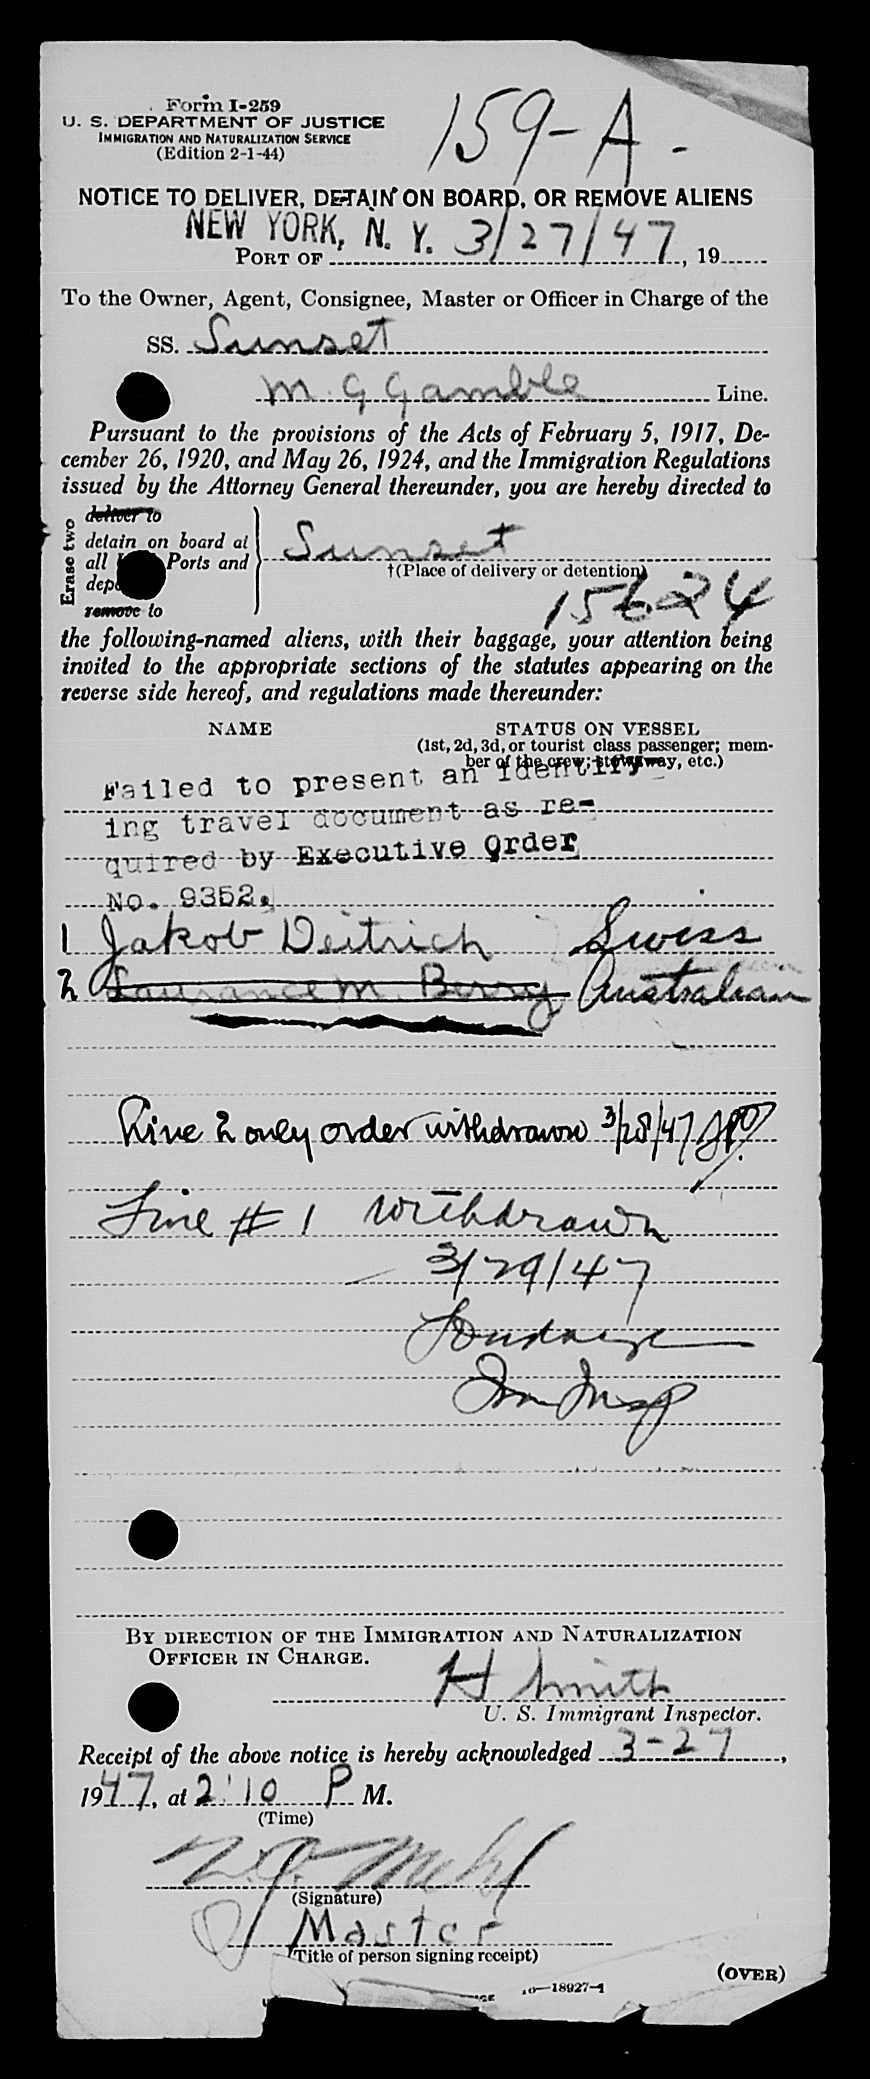 Form I-259
159-A-
U. S. DEPARTMENT OF JUSTICE
IMMIGRATION AND NATURALIZATION SERVICE
(Edition 2-1-44)
NOTICE TO DELIVER, DETAIN ON BOARD, OR REMOVE ALIENS
NEW YORK, N. Y. 3/27/47
PORT OF , 19
To the Owner, Agent, Consignee, Master or Officer in Charge of the
SS. Sunset
M. G Gamble Line.
Pursuant to the provisions of the Acts of February 5, 1917, De-
cember 26, 1920, and May 26, 1924, and the Immigration Regulations
issued by the Attorney General thereunder, you are hereby directed to
Erase two
deliver to
detain on board at
all Ports and
remove to
Sunset
†(Place of delivery or detention)
15624
the following-named aliens, with their baggage, your attention being
invited to the appropriate sections of the statutes appearing on the
reverse side hereof, and regulations made thereunder:
NAME STATUS ON VESSEL
(1st, 2d, 3d, or tourist class passenger; mem-
ber of the crew; stowaway, etc.)
Failed to present an identify-
ing travel document as re-
quired by Executive Order
No. 9352.
1 Jakob Deitrich Swiss
2 Laurance M. Berry Australian
Line 2 only order withdrawn 3/28/47
Line # 1 withdrawn
3/29/47
Imm Insp
BY DIRECTION OF THE IMMIGRATION AND NATURALIZATION
OFFICER IN CHARGE.
H Smith
U. S. Immigrant Inspector.
Receipt of the above notice is hereby acknowledged 3-27,
1947, at 2:10 P M.
(Time)
(Signature)
Master
(Title of person signing receipt)
(OVER)
16—18927-1